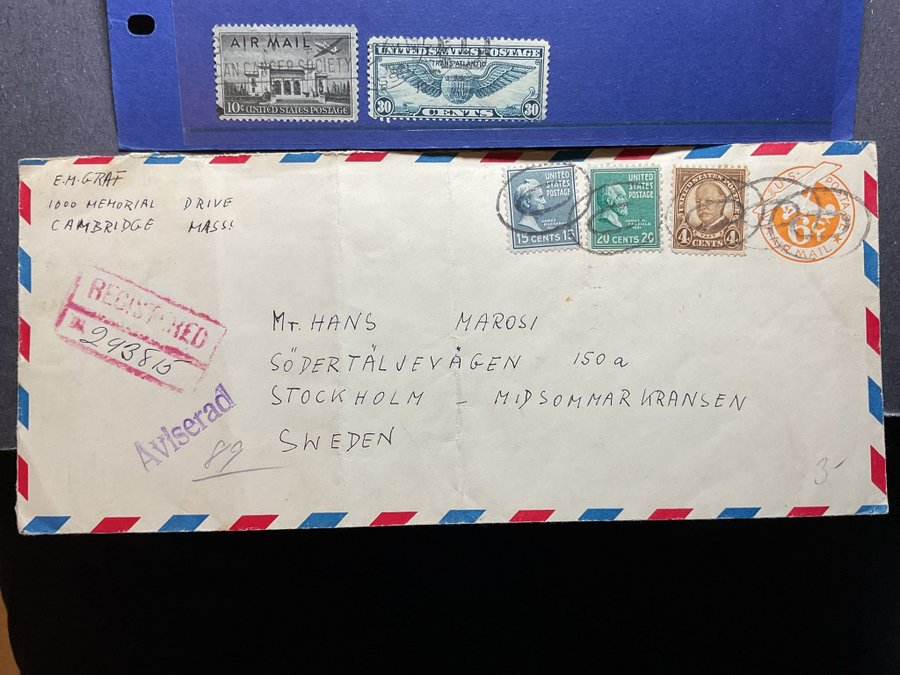 AIR MAIL
AN CANCER SOCIETY
10¢ UNITED STATES POSTAGE
UNITED STATES POSTAGE
TRANS-ATLANTIC
30 CENTS 30
E.M. GRAF
1000 MEMORIAL DRIVE
CAMBRIDGE MASS.
UNITED
STATES
POSTAGE
15 CENTS 15
UNITED
STATES
POSTAGE
20 CENTS 20
UNITED STATES POSTAGE
TAFT
4 CENTS 4
U.S. POSTAGE
6¢
AIR MAIL
REGISTERED
293815
Aviserad
89
Mr. HANS MAROSI
SÖDERTÄLJEVÄGEN 150a
STOCKHOLM – MIDSOMMARKRANSEN
SWEDEN
3-